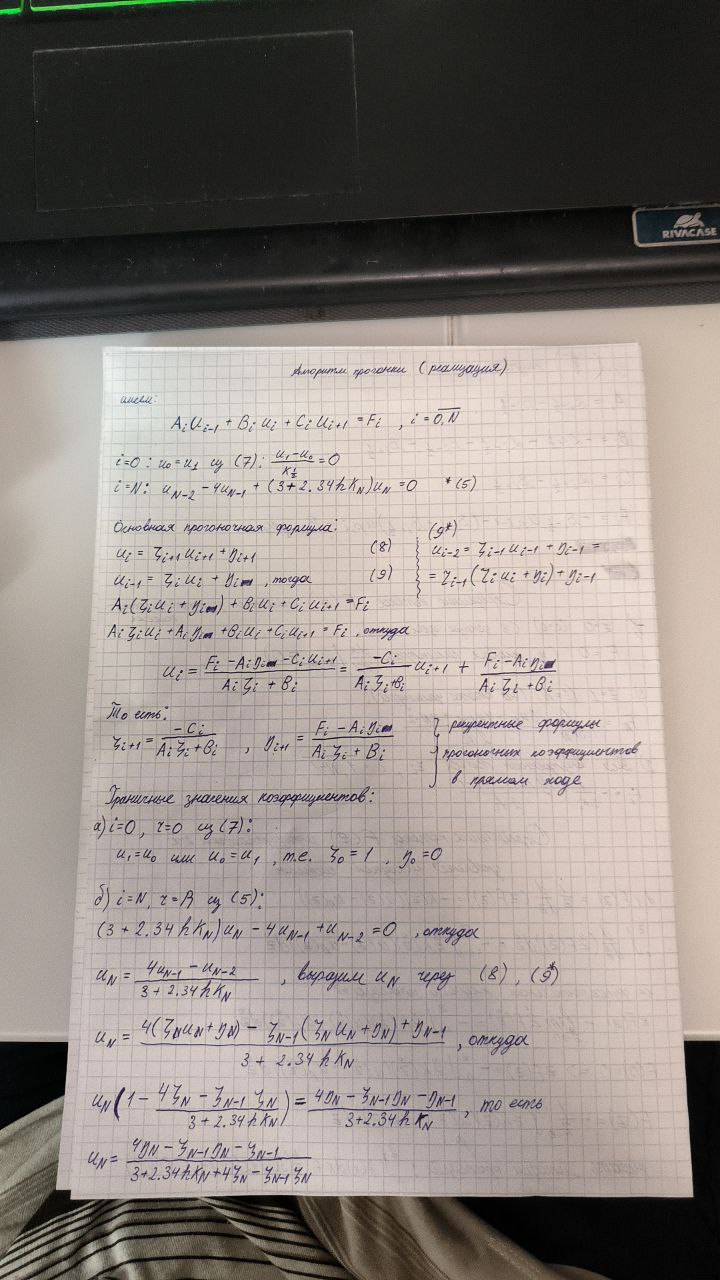 RIVACASE
Алгоритм прогонки (реализация)
имеем:
Aᵢuᵢ₋₁ + Bᵢuᵢ + Cᵢuᵢ₊₁ = Fᵢ , i = 0,N
i=0 : u₀=u₁ из (7): (u₁-u₀)/K½ = 0
i=N: u_N-2 - 4u_N-1 + (3+2.34hK_N)u_N = 0 *(5)
Основная прогоночная формула:
uᵢ = ξᵢ₊₁uᵢ₊₁ + ηᵢ₊₁ (8)
uᵢ₋₁ = ξᵢuᵢ + ηᵢ , тогда (9)
(9*)
uᵢ₋₂ = ξᵢ₋₁uᵢ₋₁ + ηᵢ₋₁ =
= ξᵢ₋₁(ξᵢuᵢ + ηᵢ) + ηᵢ₋₁
Aᵢ(ξᵢuᵢ + ηᵢ) + Bᵢuᵢ + Cᵢuᵢ₊₁ = Fᵢ
Aᵢξᵢuᵢ + Aᵢηᵢ + Bᵢuᵢ + Cᵢuᵢ₊₁ = Fᵢ , откуда
uᵢ = (Fᵢ - Aᵢηᵢ - Cᵢuᵢ₊₁)/(Aᵢξᵢ + Bᵢ) = -Cᵢ/(Aᵢξᵢ+Bᵢ) uᵢ₊₁ + (Fᵢ - Aᵢηᵢ)/(Aᵢξᵢ + Bᵢ)
То есть:
ξᵢ₊₁ = -Cᵢ/(Aᵢξᵢ + Bᵢ) , ηᵢ₊₁ = (Fᵢ - Aᵢηᵢ)/(Aᵢξᵢ + Bᵢ)
рекурентные формулы
прогоночных коэффициентов
в прямом ходе
Граничные значения коэффициентов:
а) i=0, r=0 из (7):
u₁=u₀ или u₀=u₁ , т.е. ξ₀=1 , η₀=0
б) i=N, r=R из (5):
(3+2.34hK_N)u_N - 4u_N-1 + u_N-2 = 0 , откуда
u_N = (4u_N-1 - u_N-2)/(3+2.34hK_N) , выразим u_N через (8) , (9*)
u_N = (4(ξ_N u_N + η_N) - ξ_N-1(ξ_N u_N + η_N) + η_N-1)/(3 + 2.34hK_N) , откуда
u_N(1 - (4ξ_N - ξ_N-1 ξ_N)/(3+2.34hK_N)) = (4η_N - ξ_N-1 η_N - η_N-1)/(3+2.34hK_N) , то есть
u_N = (4η_N - ξ_N-1 η_N - ξ_N-1)/(3+2.34hK_N + 4ξ_N - ξ_N-1 ξ_N)